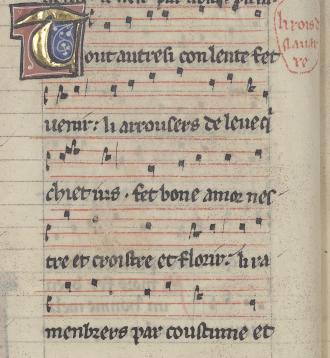 li rois d
Tout autresi con lente fet
uenir: li arrousers de leue q̄
chiet ius. fet bone amor nes
tre et croistre et florir: li ra
menbrers par coustume et